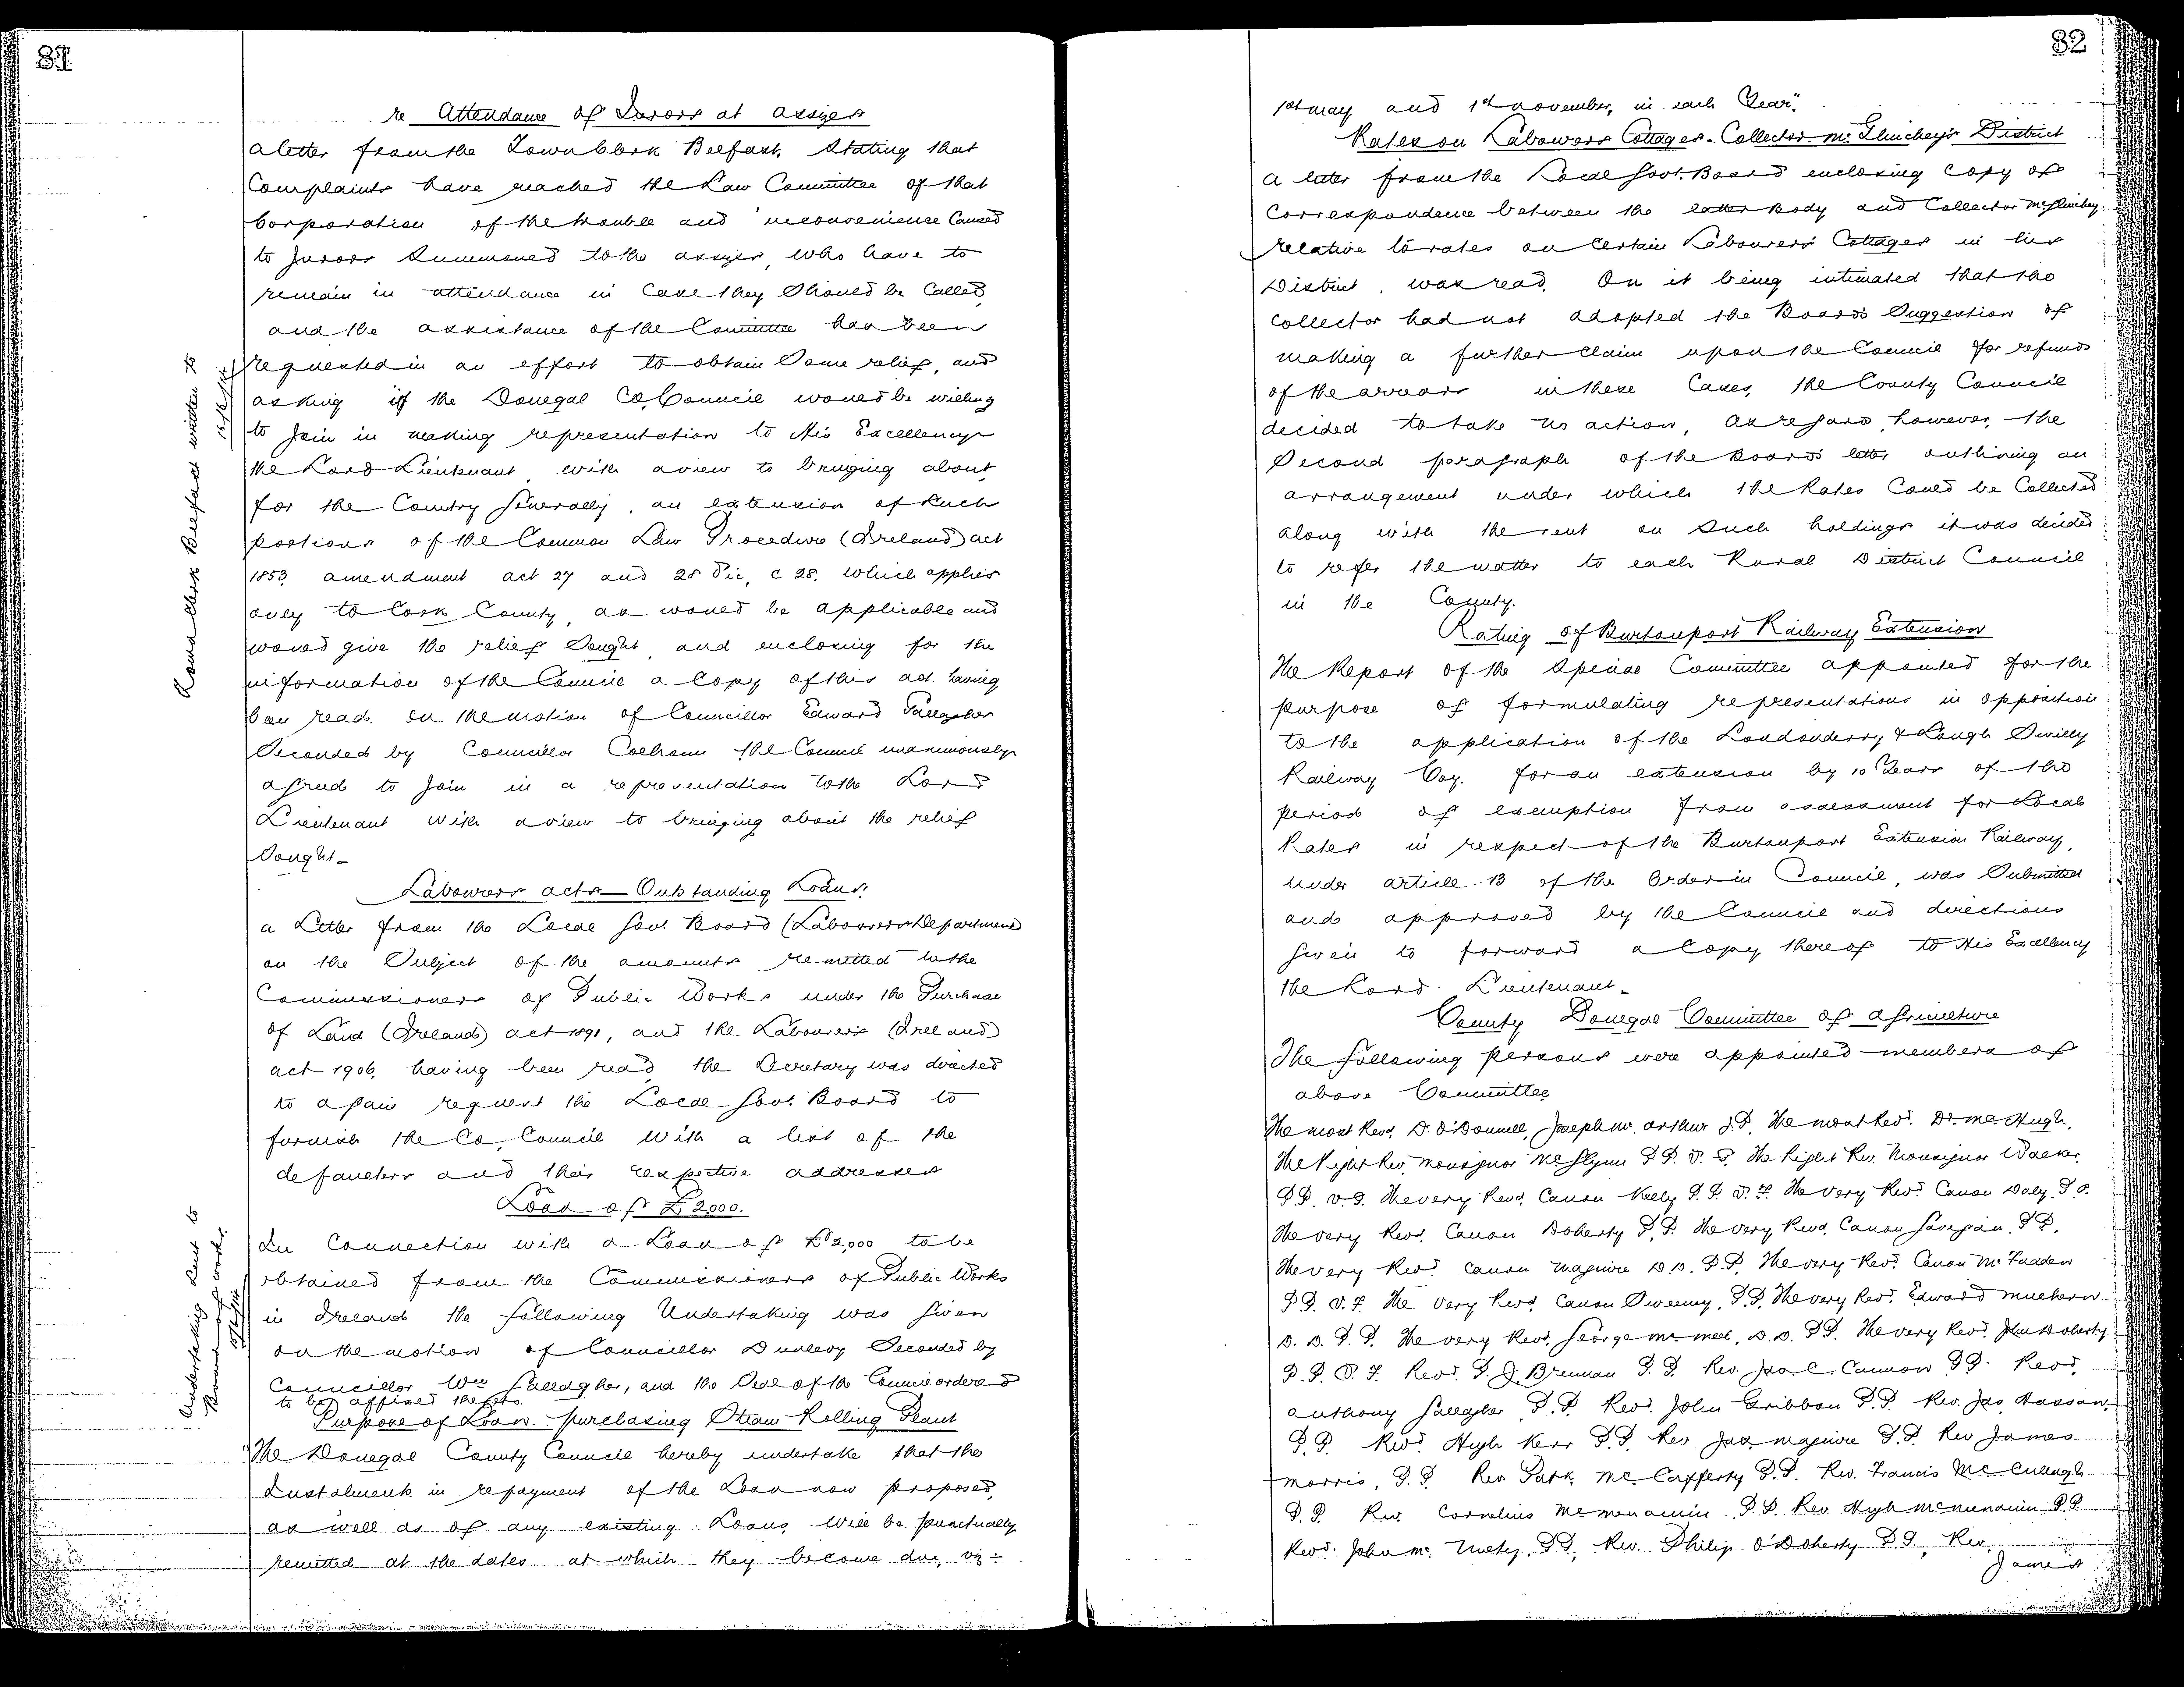 81
re Attendance of Jurors at assizes
a letter from the Town Clerk Belfast, stating that
Complaints have reached the Law Committee of that
Corporation of the trouble and inconvenience Caused
to Jurors Summoned to the assizes, who have to
remain in attendance in Case they Should be Called,
and the assistance of the Committee has been
requested in an effort to obtain Some relief, and
asking if the Donegal Co, Council would be willing
to Join in making representation to His Excellency
the Lord Lieutenant with a view to bringing about,
for the Country Generally, an extension of Such
portions of the Common Law Procedure (Ireland) act
1853, amendment act 27 and 28 Vic, c 28, which applies
only to Cork County, as would be applicable and
would give the relief Sought, and enclosing for the
information of the Council a Copy of this act. having
been read. on the motion of Councillor Edward Gallagher
Seconded by Councillor Colhoun the Council unanimously
agreed to Join in a representation to the Lord
Lieutenant with a view to bringing about the relief
Sought_
Town Clerk Belfast written to
Labourers acts — Outstanding Loans.
a Letter from the Local Govt. Board (Labourers Department
on the Subject of the amounts remitted to the
Commissioners of Public Works under the Purchase
of Land (Ireland) act 1891, and the Labourers (Ireland)
act 1906, having been read, the Secretary was directed
to again request the Local Govt. Board to
furnish the Co, Council with a list of the
defaulters and their respective addresses
Loan of £2,000.
In Connection with a Loan of £2,000 to be
obtained from the Commissioners of Public Works
in Ireland the following Undertaking was Given
on the motion of Councillor Dunlevy Seconded by
Councillor Wm Gallagher, and the Seal of the Council ordered
to be affixed thereto.
Undertaking Sent to
Board of works
Purpose of Loan. purchasing Steam Rolling Plant
"The Donegal County Council hereby undertake that the
Instalments in repayment of the Loan now proposed,
as well as of any existing Loans, will be punctually
remitted at the dates at which they become due, viz:-
82
1st may and 1st november, in each Year".
Rates on Labourers Cottages - Collector Mc Glinchey's District
a letter from the Local Govt. Board enclosing Copy of
Correspondence between the latter body and Collector McGlinchey
relative to rates on Certain Labourers' Cottages in his
District, was read. On it being intimated that the
Collector had not adopted the Board's Suggestion of
making a further Claim upon the Council for refund
of the arrears in these Cases, the County Council
decided to take no action, as regard, however, the
Second paragraph of the Board's letter outlining an
arrangement under which the Rates Could be Collected
along with the rent on such holdings it was decided
to refer the matter to each Rural District Council
in the County.
Rating of Burtonport Railway Extension
The Report of the Special Committee appointed for the
purpose of formulating representations in opposition
to the application of the Londonderry & Lough Swilly
Railway Coy. for an extension by 10 Years of the
period of exemption from assessment for Local
Rates in respect of the Burtonport Extension Railway,
under article 13 of the Order in Council, was Submitted
and approved by the Council and directions
Given to forward a Copy thereof to His Excellency
the Lord Lieutenant_
County Donegal Committee of agriculture
The following persons were appointed members of
above Committee
The most Revd. Dr. O'Donnell, Joseph Mc. Arthur J.P. The most Revd. Dr. McHugh,
The Right Rev. Monsignor McGlynn P.P. V.G. The Right Rev. Monsignor Walker
P.P. V.G. The very Revd. Canon Kelly P.P. V.F. The Very Revd. Canon Daly, P.P.
The very Revd. Canon Doherty P.P. The very Revd. Canon Gavigan, P.P.
The very Revd. Canon Maguire D.D. P.P. The very Revd. Canon McFadden
P.P. V.F. The Very Revd. Canon Sweeney, P.P. The very Revd. Edward Mulhern
D.D. P.P. The very Revd. George Mc Meel, D.D. P.P. The very Revd. John Doherty
P.P. V.F. Revd. P.J. Brennan P.P. Rev. Jas. C. Cannon P.P. Revd.
Anthony Gallagher P.P. Revd. John Gribbon P.P. Rev. Jas. Hassan,
P.P. Revd. Hugh Kerr P.P. Rev. Jas. Maguire P.P. Rev James
Morris, P.P. Rev Patk. McCafferty P.P. Rev. Francis McCullagh
P.P. Rev Cornelius McMenamin P.P. Rev Hugh McMenamin P.P.
Revd. John Mc. P.P. Rev. Philip O'Doherty P.P. Rev.
James